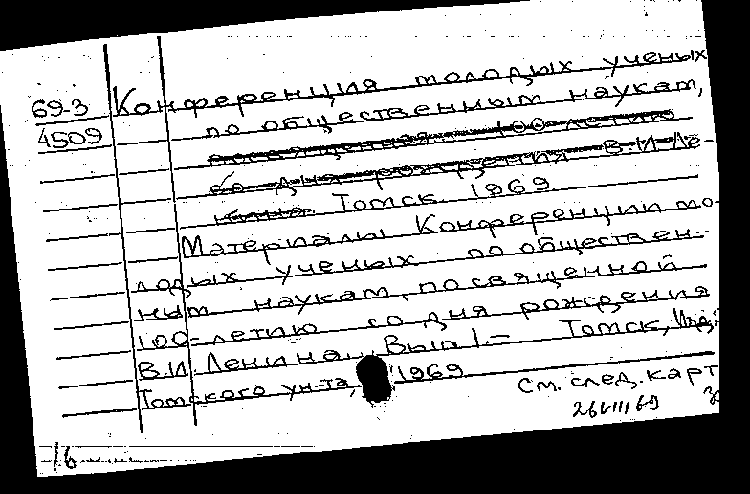 69-3 Конференция молодых ученых
4509 по общественным наукам,
посвященная 100-летию
со дня рождения В.И. Ле-
нина. Томск. 1969
Материалы Конференции мо-
лодых ученых по обществен-
ным наукам, посвященной
100-летию со дня рождения
В.И. Ленина. Вып 1.- Томск, Изд.
Томского ун-та, 1969
См. след. карт
16